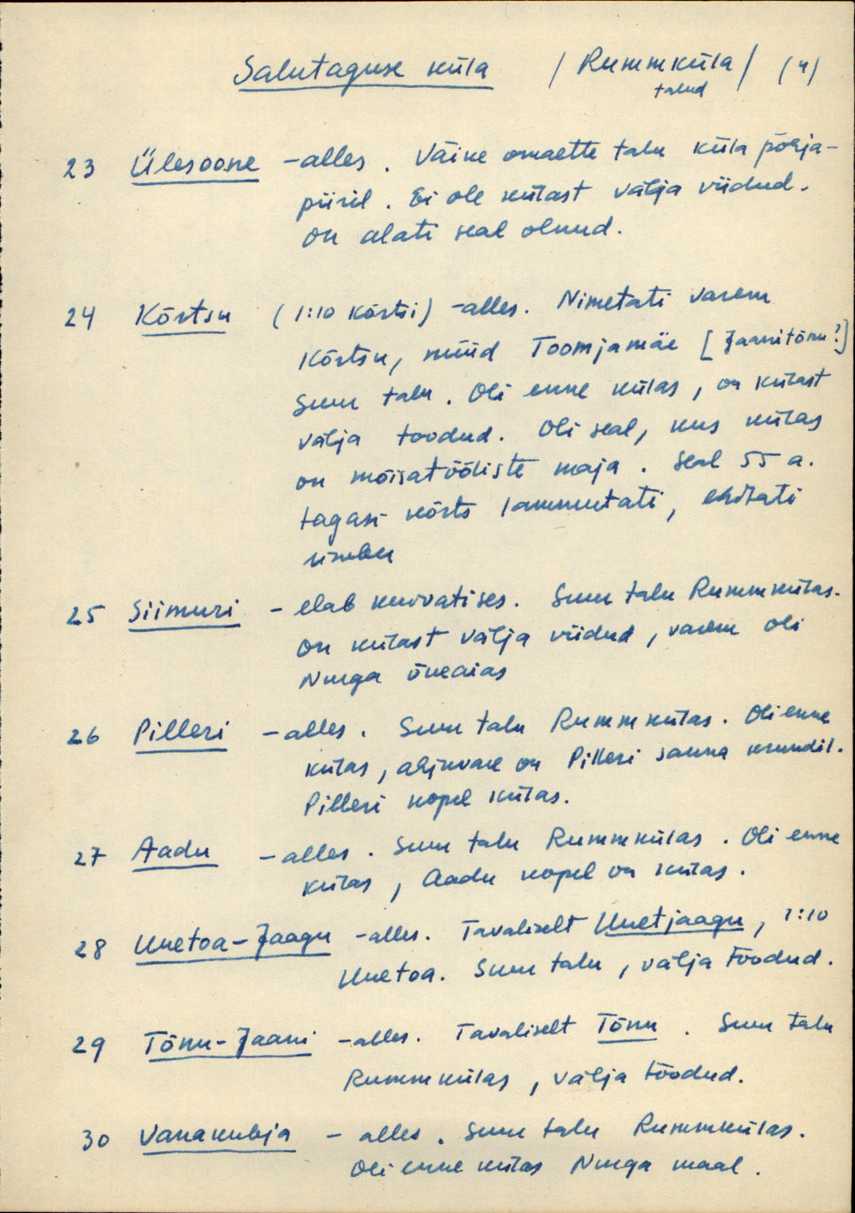 Salutaguse küla / Rummküla / (4)
talud
23 Ülesoone - alles. Väike omaette talu küla põhja-
piiril. Ei ole külast välja viidud.
On alati seal olnud.
24 Kõrtsu (1:10 Kõrtsi) - alles. Nimetati varem
Kõrtsu, nüüd Toomjamäe [Jaanitõnu?]
Suur talu. Oli enne külas, on külast
välja toodud. Oli seal, kus külas
on mõisatööliste maja. Seal 55 a.
tagasi kõrts lammutati, ehitati
ümber
25 Siimuri - elab kuivatises. Suur talu Rummkülas.
On külast välja viidud, varem oli
Nurga õueaias
26 Pilleri - alles. Suur talu Rummkülas. Oli enne
külas, ahjuvare on Pilleri sauna krundil.
Pilleri kopel külas.
27 Aadu - alles. Suur talu Rummkülas. Oli enne
külas, Aadu kopel on külas.
28 Uuetoa-Jaagu - alles. Tavaliselt Uuetjaagu, 1:10
Uuetoa. Suur talu, välja toodud.
29 Tõnu-Jaani - alles. Tavaliselt Tõnu. Suur talu
Rummkülas, välja toodud.
30 Vanakubja - alles. Suur talu Rummkülas.
Oli enne külas Nurga maal.